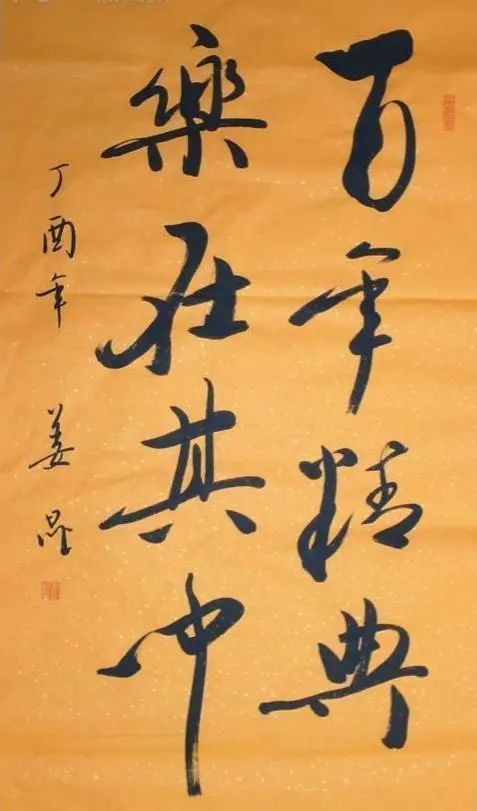 百年精典
樂在其中
丁酉年 姜